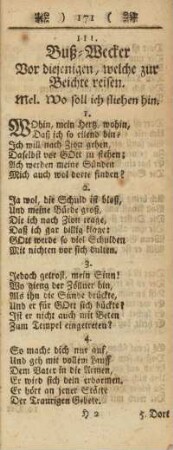 171
111.
Buß-Wecker
Vor diejenigen, welche zur
Beichte reisen.
Mel. Wo soll ich fliehen hin.
1.
WOhin, mein Hertz, wohin,
Daß ich so eilend bin?
Ich will nach Zion gehen,
Daselbst vor GOtt zu stehen;
Ach werden meine Sünden
Mich auch wol dorte finden?
2.
Ja wol, die Schuld ist bloß,
Und meine Bürde groß,
Die ich nach Zion trage,
Daß ich gar billig klage:
GOtt werde so viel Schulden
Mit nichten vor sich dulten.
3.
Jedoch getrost, mein Sinn!
Wo gieng der Zöllner hin,
Als ihn die Sünde drückte,
Und er für GOtt sich bückte?
Ist er nicht auch mit Beten
Zum Tempel eingetreten?
4.
So mache dich nur auf,
Und geh mit vollem Lauff
Dem Vater in die Armen,
Er wird sich dein erbarmen,
Er hört an jener Stätte
Der Traurigen Gebete.
H 2
5. Dort